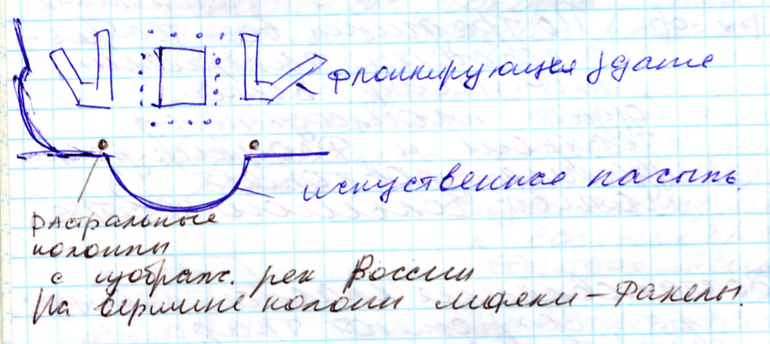 фланкирующие здание
искуственная насыпь.
растральные
колонны
с изображ. рек России
На вершине колонн маяки-факелы.